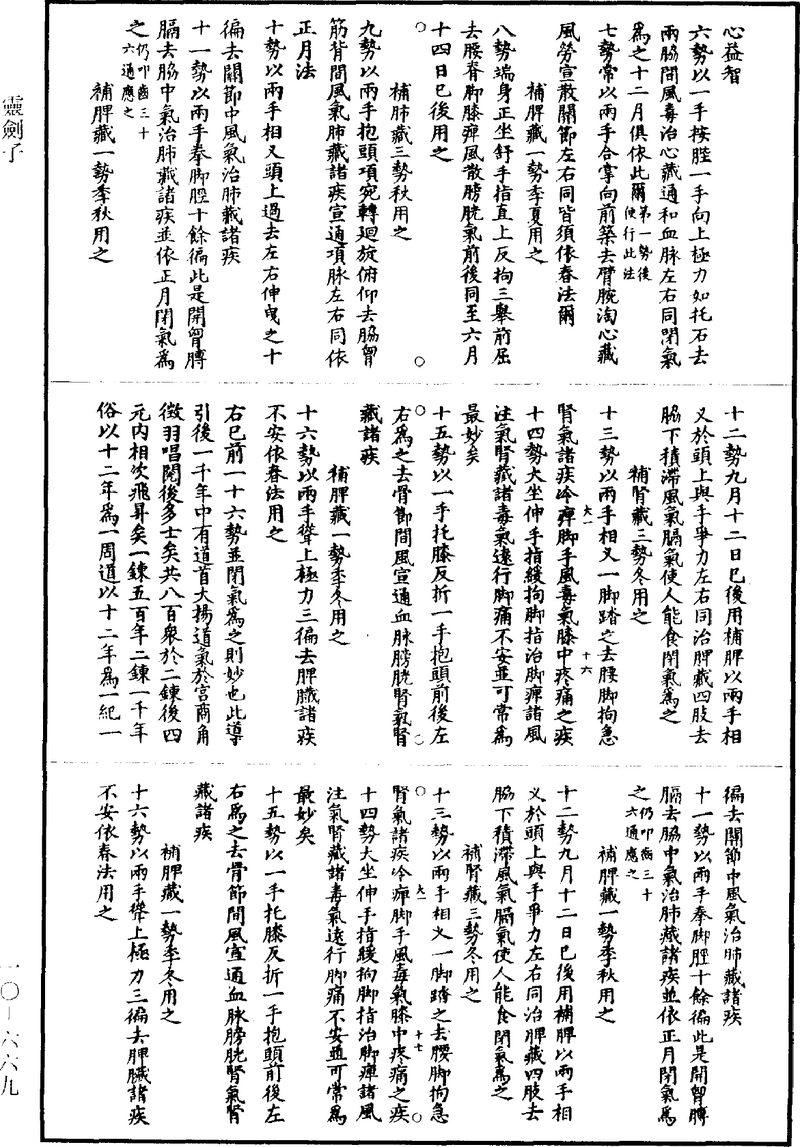 心益智
六勢以一手按䏶一手向上極力如托石去
兩脇間風毒治心藏通和血脉左右同閉氣
為之十二月俱依此爾第一勢後使行此法
七勢常以兩手合掌向前築去臂腕淘心藏
風勞宣散關節左右同皆須依春法爾
補脾藏一勢季夏用之
八勢端身正坐舒手指直上反拘三舉前屈
去腰脊脚膝痺風散膀胱氣前後同至六月
十四日已後用之
補肺藏三勢秋用之
九勢以兩手抱頭項宛轉廻旋俯仰去脇曾
筋背間風氣肺藏諸疾宣通項脉左右同依
正月法
十勢以兩手相叉頭上過去左右伸曳之十
徧去關節中風氣治肺藏諸疾
十一勢以兩手拳脚脛十餘徧此是開曾膊
膈去脇中氣治肺藏諸疾並依正月閉氣為
之仍叩齒三十六通應之
補脾藏一勢季秋用之
十二勢九月十二日已後用補脾以兩手相
叉於頭上與手爭力左右同治脾藏四肢去
脇下積滯風氣膈氣使人能食閉氣為之
補腎藏三勢冬用之
十三勢以兩手相叉一脚踏之去腰脚拘急
腎氣諸疾冷痺脚手風毒氣膝中疼痛之疾
十四勢大坐伸手指緩拘脚指治脚痺諸風
注氣腎藏諸毒氣遠行脚痛不安並可常為
最妙矣
十五勢以一手托膝反折一手抱頭前後左
右為之去骨節間風宣通血脉膀胱腎氣腎
藏諸疾
補脾藏一勢季冬用之
十六勢以兩手聳上極力三徧去脾臟諸疾
不安依春法用之
右已前一十六勢並閉氣為之則妙也此導
引後一千年中有道首大揚道氣於宮商角
徵羽唱閱後多士矣共八百衆於二鍊後四
元内相次飛昇矣一鍊五百年二鍊一千年
俗以十二年為一周道以十二年為一紀一
徧去關節中風氣治肺藏諸疾
十一勢以兩手拳脚脛十餘徧此是開曾膊
膈去脇中氣治肺藏諸疾並依正月閉氣為
之仍叩齒三十六通應之
補脾藏一勢季秋用之
十二勢九月十二日已後用補脾以兩手相
叉於頭上與手爭力左右同治脾藏四肢去
脇下積滯風氣膈氣使人能食閉氣為之
補腎藏三勢冬用之
十三勢以兩手相叉一脚踏之去腰脚拘急
腎氣諸疾冷痺脚手風毒氣膝中疼痛之疾
十四勢大坐伸手指緩拘脚指治脚痺諸風
注氣腎藏諸毒氣遠行脚痛不安並可常為
最妙矣
十五勢以一手托膝反折一手抱頭前後左
右為之去骨節間風宣通血脉膀胱腎氣腎
藏諸疾
補脾藏一勢季冬用之
十六勢以兩手聳上極力三徧去脾臟諸疾
不安依春法用之
靈劍子
一〇-六六九
大一
十六
大一
十七